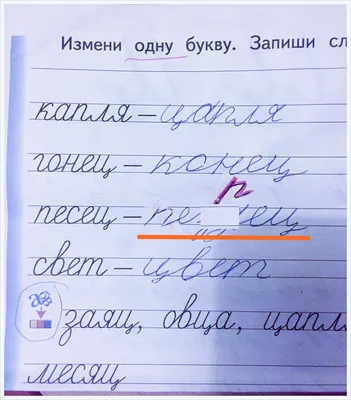 Измени одну букву. Запиши сл
капля – цапля
гонец – конец
р
песец –
свет – цвет
заяц, овца, цапл
месяц